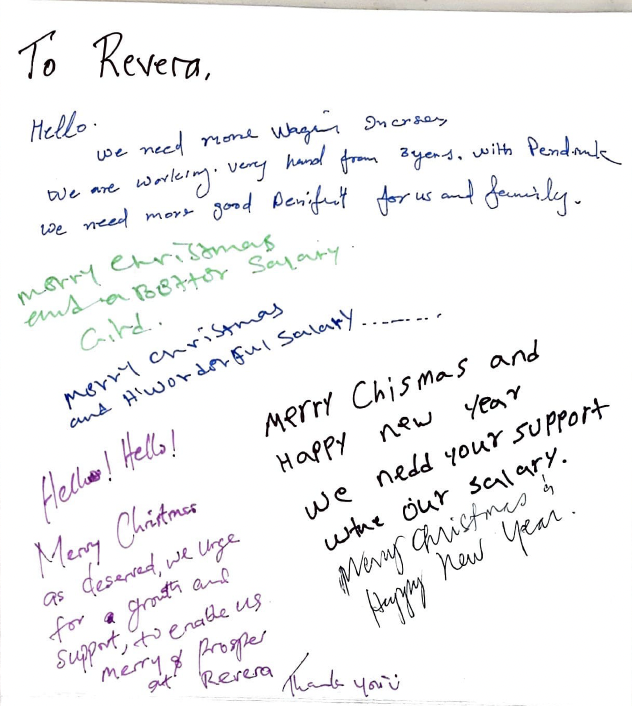 To Revera,
Hello.
we need more wages Increas
We are working. very hard from 3years. with Pendmk
we need more good Benifut for us and family.
merry christmas
and a BBttor Salary.
Gird.
merry christmas
and H'worderful salary.........
Merry Chismas and
Happy new year
we nedd your support
wthe our salary.
Merry Christmas &
Happy New Year.
Hello! Hello!
Merry Christmas
as deserved, we urge
for a growth and
support, to enable us
merry & prosper
at Revera
Thank you